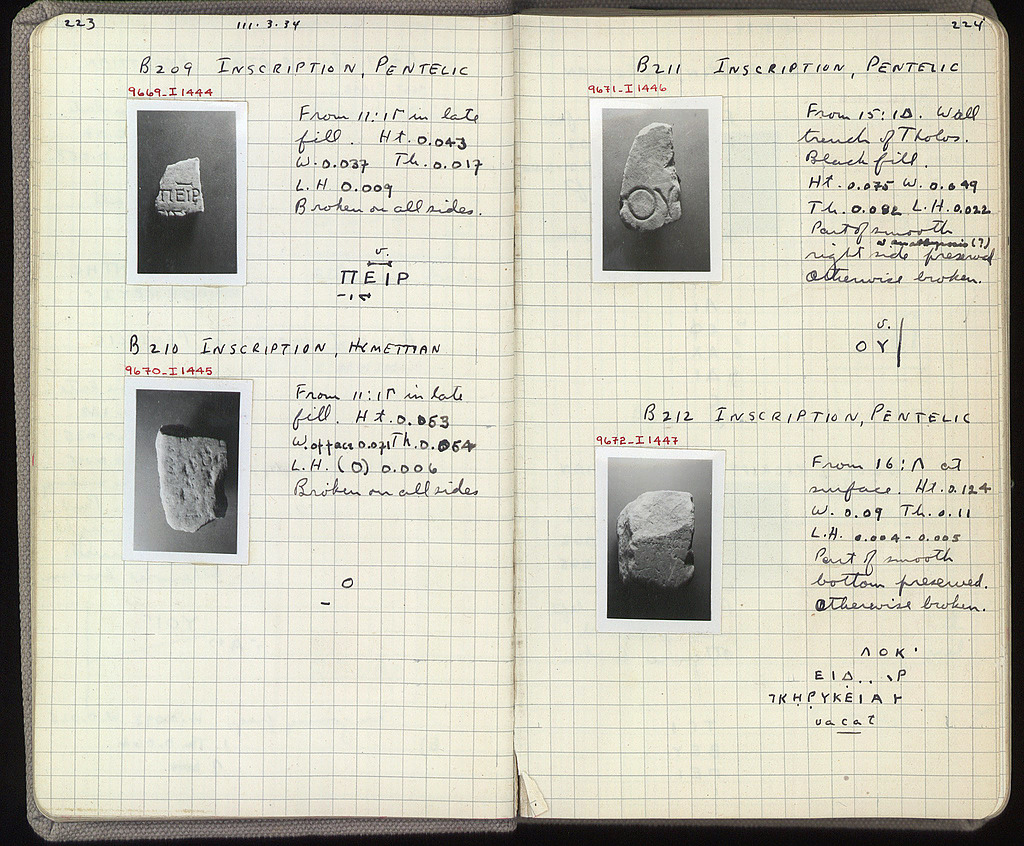 223
111·3·34
B209 INSCRIPTION, PENTELIC
9669-I 1444
From 11:ΙΓ in late
fill. Ht. 0.043
W. 0.037 Th. 0.017
L.H 0.009
Broken on all sides.
v.
ΠΕΙΡ
B210 INSCRIPTION, HYMETTIAN
9670-I 1445
From 11:ΙΓ in late
fill. Ht. 0.053
W. of face 0.031 Th. 0.054
L.H. (O) 0.006
Broken on all sides
O
224
B211 INSCRIPTION, PENTELIC
9671-I 1446
From 15:ΙΔ. Wall
trench of Tholos.
Black fill.
Ht. 0.075 W. 0.049
Th. 0.082 L.H. 0.022
Part of smooth
w anathyrosis (?)
right side preserved
otherwise broken.
v.
ΟΥ
B212 INSCRIPTION, PENTELIC
9672-I 1447
From 16:Λ at
surface. Ht. 0.124
W. 0.09 Th. 0.11
L.H. 0.004-0.005
Part of smooth
bottom preserved.
Otherwise broken.
ΛΟΚ'
ΕΙΔ..\Ρ
ΚΗΡΥΚΕΙΑ
vacat